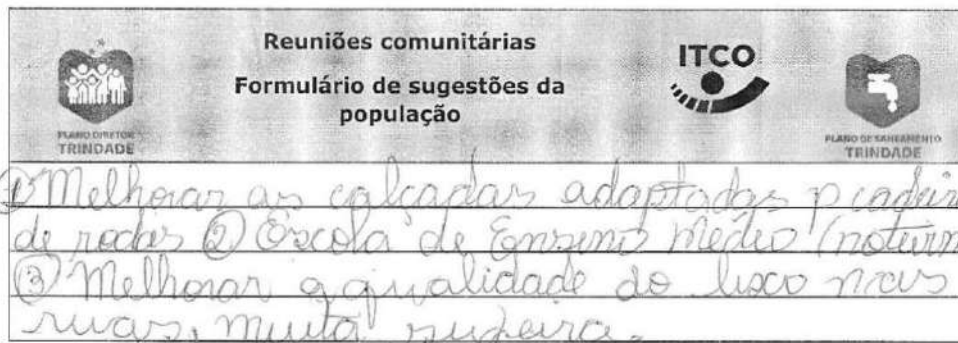 Reuniões comunitárias
Formulário de sugestões da
população
ITCO
PLANO DIRETOR
TRINDADE
PLANO DE SANEAMENTO
TRINDADE
① Melhorar as calçadas adaptadas p cadeir
de rodas ② Escola de Ensino Médio (noturn
③ Melhorar a qualidade do lixo nas
ruas, muita sujeira.